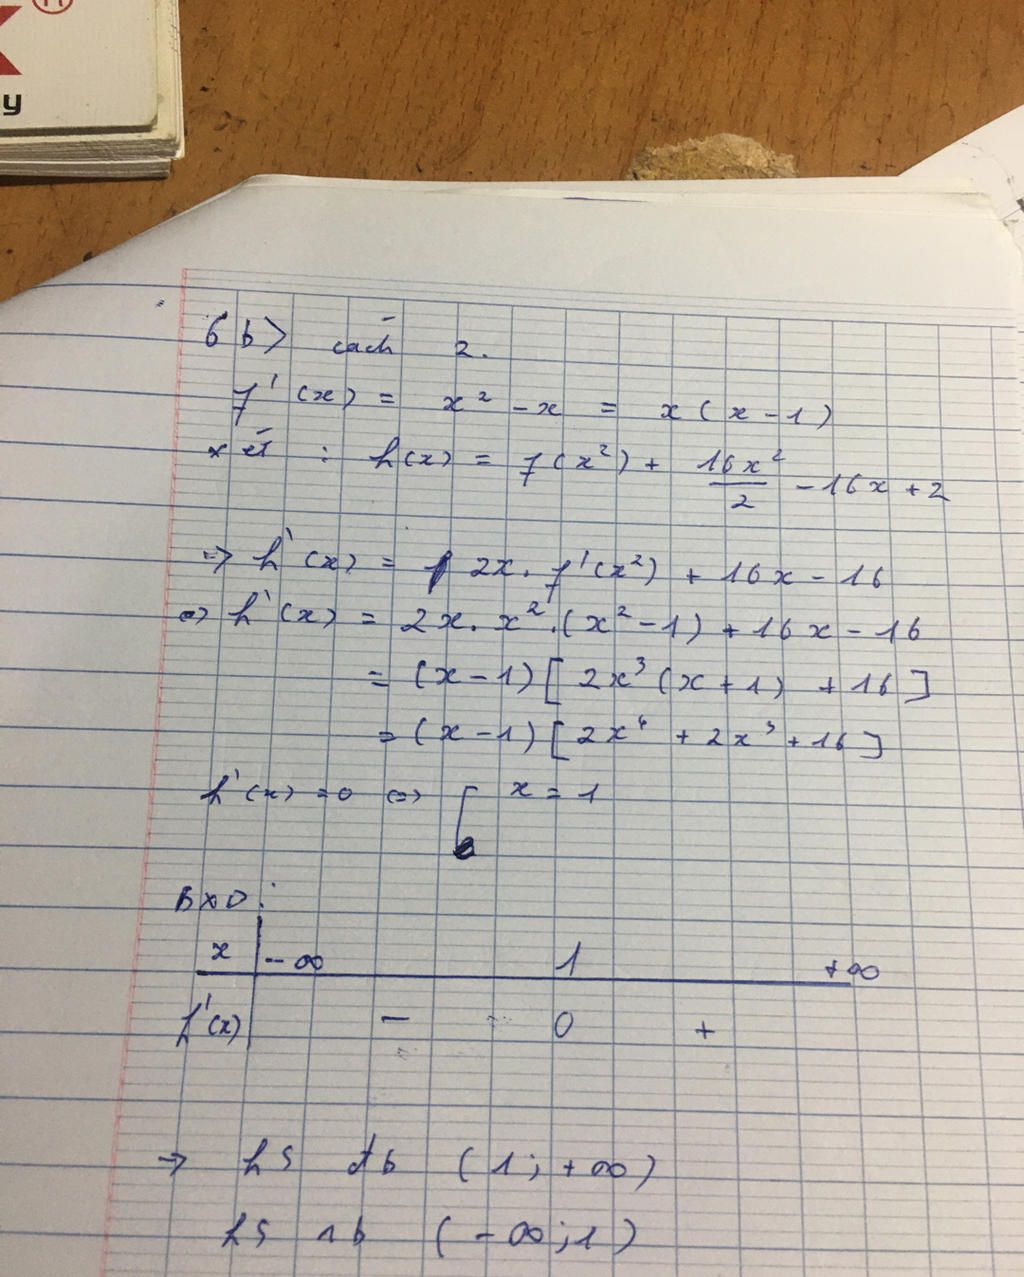 ®
y
6 b> cách 2.
f'(x) = x² - x = x(x-1)
xét : h(x) = f(x²) + 16x²/2 - 16x + 2
=> h'(x) = 2x. f'(x²) + 16x - 16
<=> h'(x) = 2x. x².(x²-1) + 16x - 16
= (x-1)[2x³(x+1) + 16]
= (x-1)[2x⁴ + 2x³ + 16]
h'(x) = 0 <=> [ x = 1
BXD:
x | -∞ 1 +∞
h'(x) | - 0 +
-> hs đb (1; +∞)
hs nb (-∞; 1)